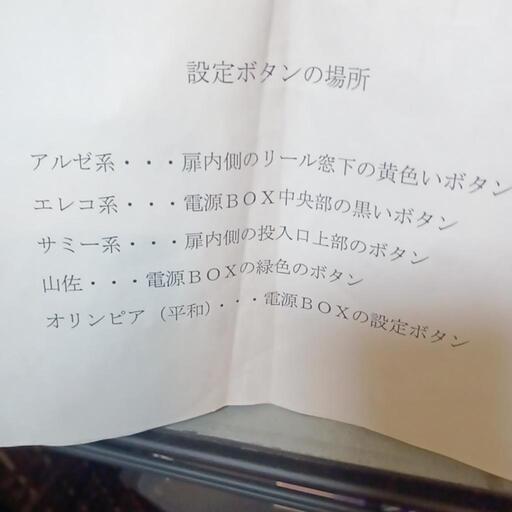 設定ボタンの場所
アルゼ系・・・扉内側のリール窓下の黄色いボタン
エレコ系・・・電源ＢＯＸ中央部の黒いボタン
サミー系・・・扉内側の投入口上部のボタン
山佐・・・電源ＢＯＸの緑色のボタン
オリンピア（平和）・・・電源ＢＯＸの設定ボタン